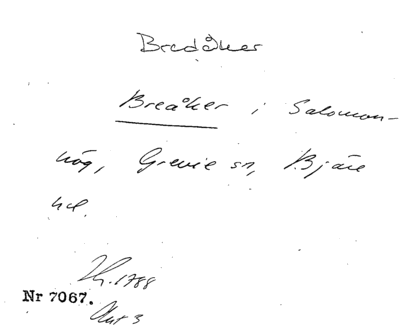 Bredåker
Breåker i Salomon-
hög, Grevie sn, Bjäre
hd.
1788
Nr 7067.
Akt 3